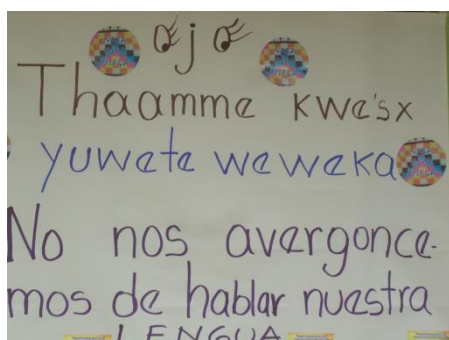 ojo
Thaamme kwe'sx
yuwete weweka
No nos avergonce-
mos de hablar nuestra
LENGUA